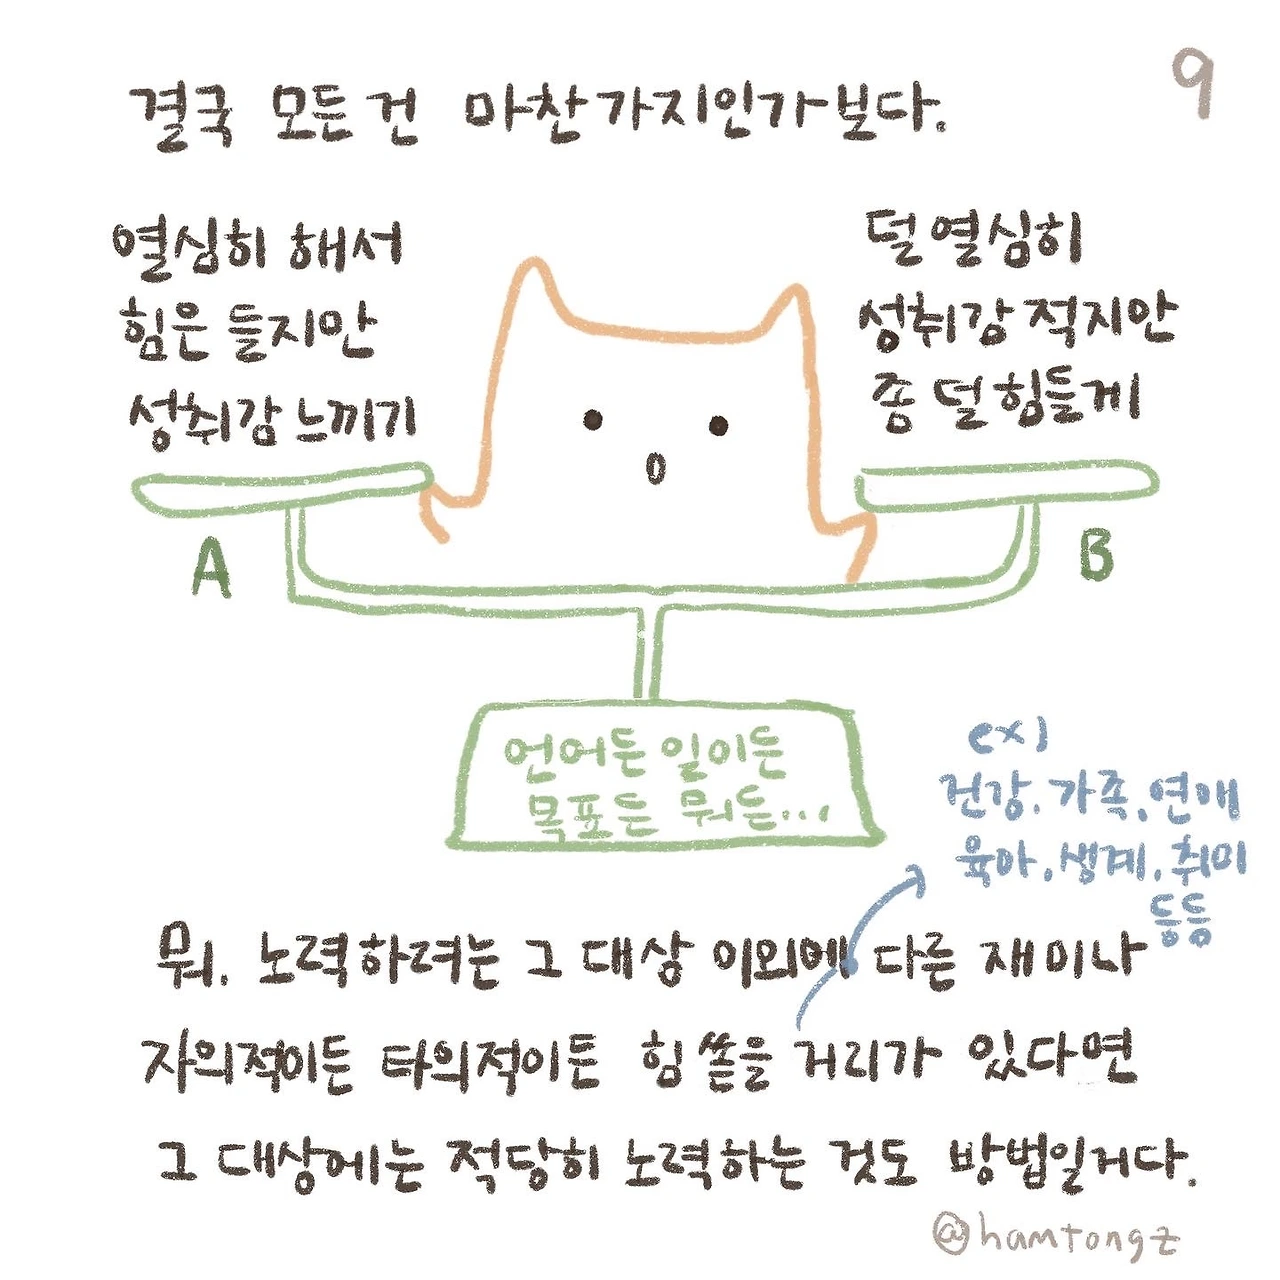 9
결국 모든 건 마찬가지인가보다.
열심히 해서
힘은 들지만
성취감 느끼기
덜 열심히
성취감 적지만
좀 덜 힘들게
A
B
언어든 일이든
목표든 뭐든...
ex)
건강, 가족, 연애
육아, 생계, 취미
등등
뭐, 노력하려는 그 대상 이외에 다른 재미나
자의적이든 타의적이든 힘 쏟을 거리가 있다면
그 대상에는 적당히 노력하는 것도 방법일거다.
@hamtongz